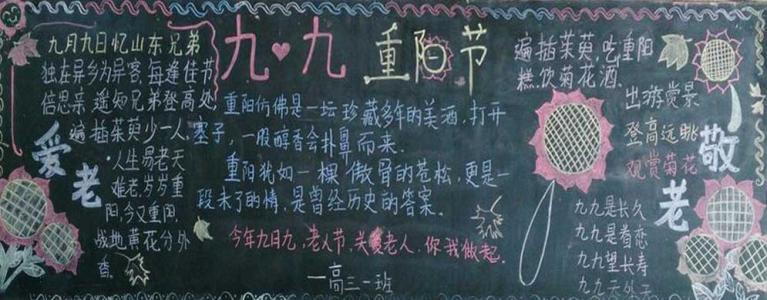 九月九日忆山东兄弟
独在异乡为异客,每逢佳节
倍思亲,遥知兄弟登高处,
遍插茱萸少一人.
人生易老天
难老,岁岁重
阳,今又重阳,
战地黄花分外
香.
爱老
九 九 重阳节
重阳仿佛是一坛珍藏多年的美酒,打开
塞子,一股醇香会扑鼻而来.
重阳犹如一棵傲骨的苍松,更是一
段未了的情,是曾经历史的答案.
今年九日九,老人节,关爱老人,你我做起.
一高三一班
遍插茱萸,吃重阳
糕,饮菊花酒.
出游赏景
登高远眺
观赏菊花
敬老
九九是长久
九九是眷恋
九九望长寿